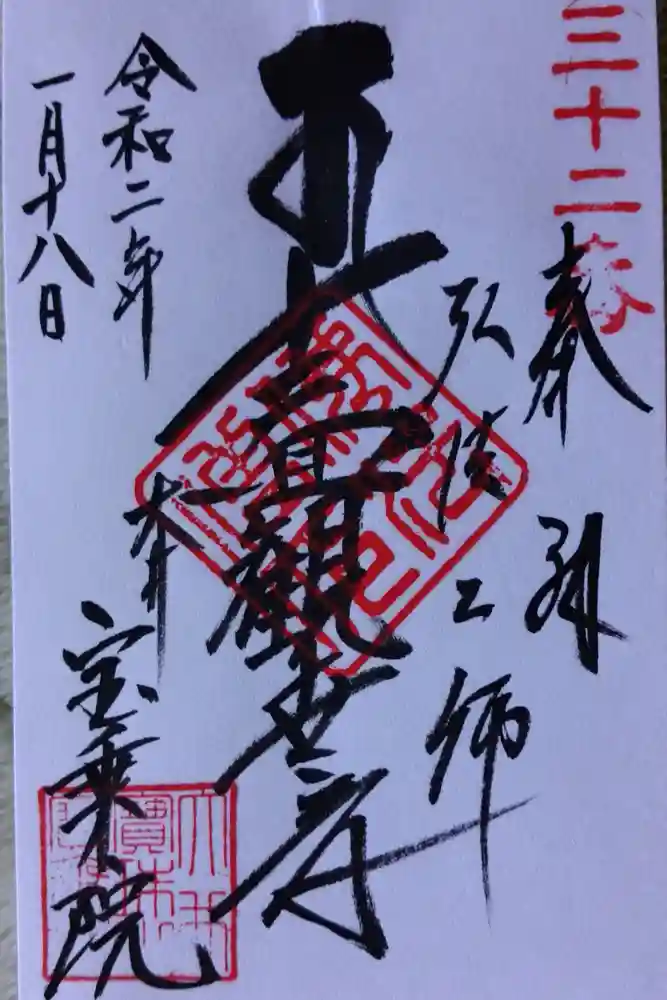 三十二番
奉拝
弘法大師
十一面觀世音
宝乗院
令和二年
一月十八日